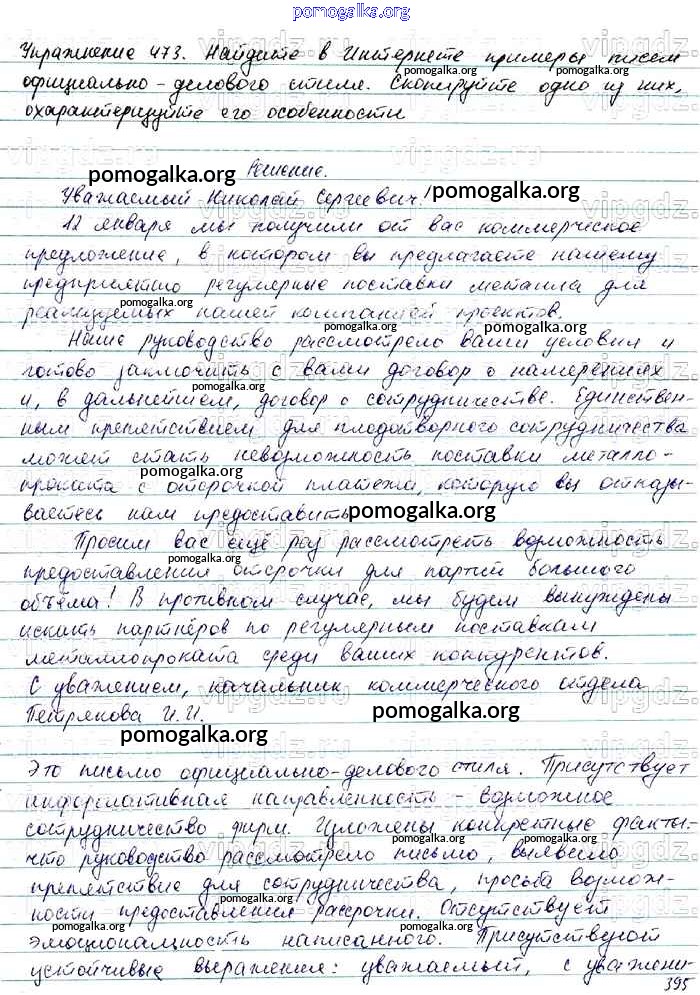 pomogalka.org
Упражнение 473. Найдите в Интернете примеры писем
официально-делового стиля. Скопируйте одно из них,
охарактеризуйте его особенности.
Решение.
Уважаемый Николай Сергеевич!
12 января мы получили от вас коммерческое
предложение, в котором вы предлагаете нашему
предприятию регулярные поставки металла для
реализуемых нашей компанией проектов.
Наше руководство рассмотрело ваши условия и
готово заключить с вами договор о намерениях
и, в дальнейшем, договор о сотрудничестве. Единствен-
ным препятствием для плодотворного сотрудничества
может стать невозможность поставки металло-
проката с отсрочкой платежа, которую вы отказы-
ваетесь нам предоставить.
Просим вас ещё раз рассмотреть возможность
предоставления отсрочки для партий большого
объёма! В противном случае, мы будем вынуждены
искать партнёров по регулярным поставкам
металлопроката среди ваших конкурентов.
С уважением, начальник коммерческого отдела
Петрякова И.И.
Это письмо официально-делового стиля. Присутствует
информативная направленность - возможное
сотрудничество фирм. Изложены конкретные факты-
что руководство рассмотрело письмо, выявлено
препятствие для сотрудничества, просьба возмож-
ности предоставления рассрочки. Отсутствует
эмоциональность написанного. Присутствуют
устойчивые выражения: уважаемый, с уважени-
395